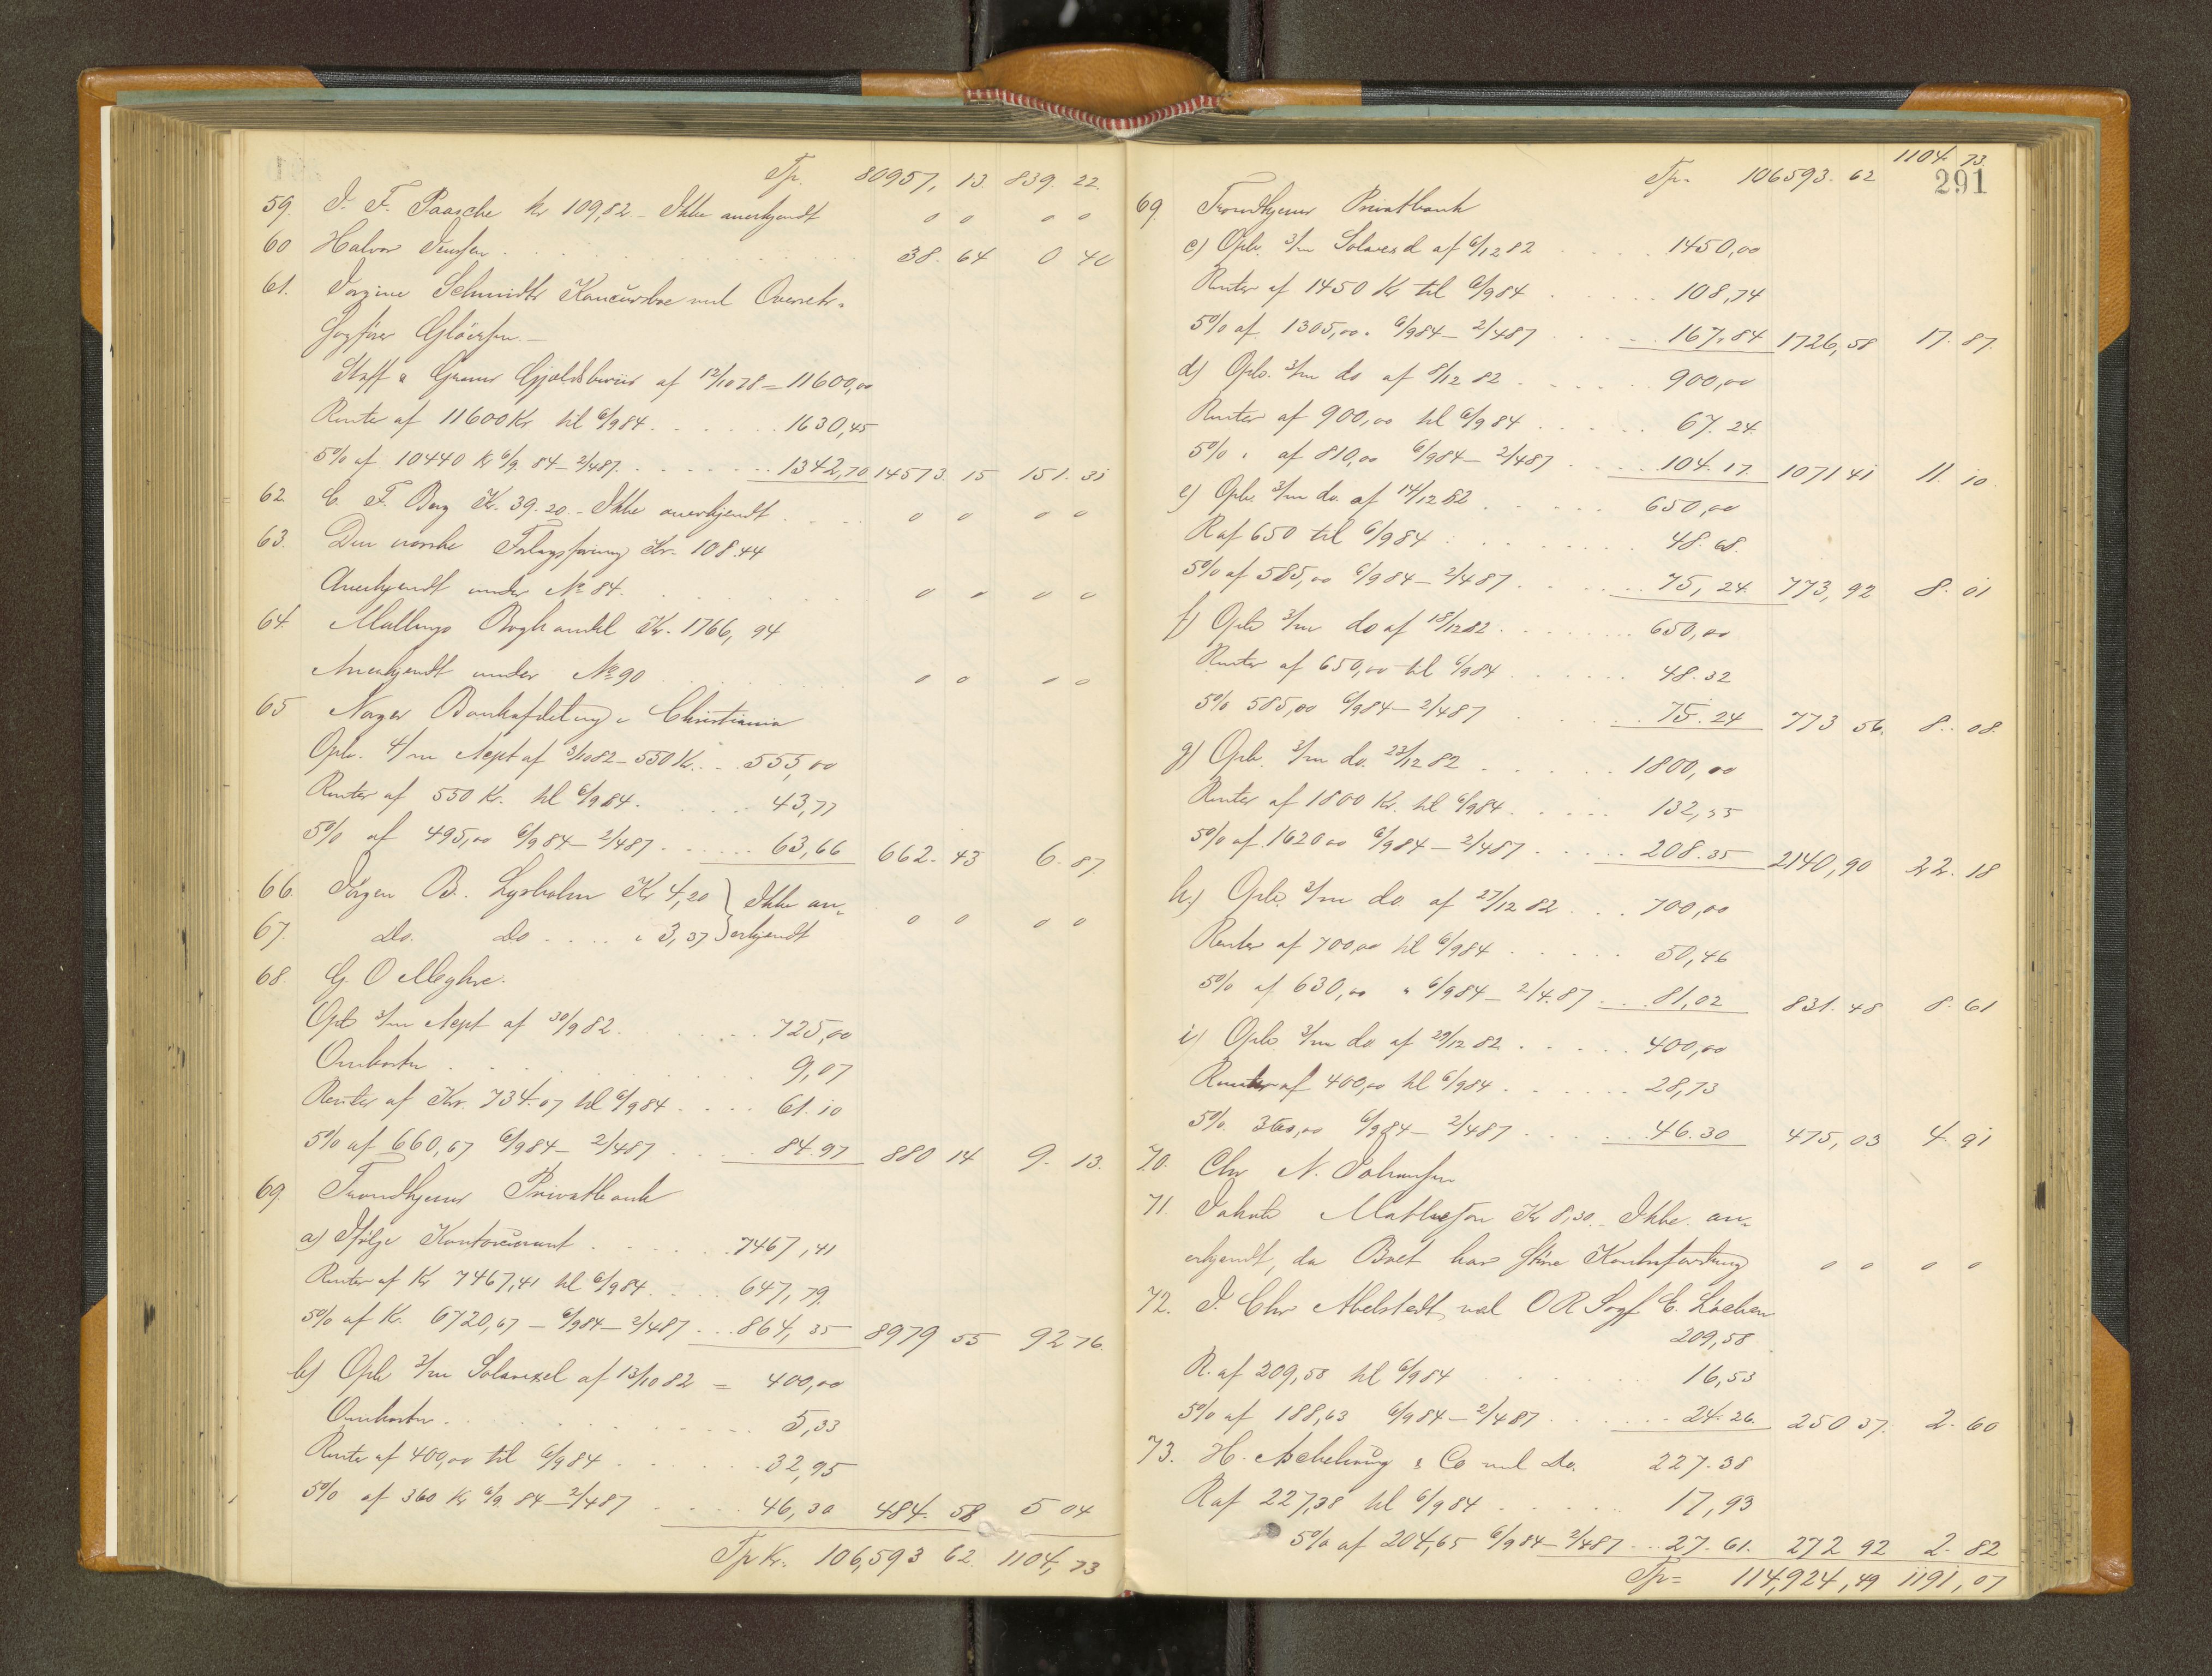 Tp. 80957,13. 839.22.
59. J. F. Paasche Kr 109,82 - Ikke anerkjendt 0 0 0 0
60 Halvor Jensen 38.64 0 40
61. Jørgine Schmidts Koncursbo ved Overrets-
sagfører Gløersen. -
Staff a Grams Gjældsbeviis af 12/10 78 = 11600,00
Renter af 11600 Kr til 6/9 84 1630,45
5% af 10440 Kr 6/9 84 - 2/4 87. 1342,70 14573.15 151.35
62. C. F. Berg Kr. 39.20. - Ikke anerkjendt 0 0 0 0
63. Den norske Forlagsforening Kr. 108.44
Anerkjendt under No 84. 0 0 0 0
64. Mallings Boghandel Kr. 1766,94
Anerkjendt under No 90 0 0 0 0
65 Norges Bankafdeling i Christiania
Opb. 4/m Acpt af 3/10 82 - 550 Kr. 555,00
Renter af 550 Kr. til 6/9 84. 43,77
5% af 495,00 6/9 84 - 2/4 87. 63,66 662.43 6.87.
66. Jørgen B. Lysholm Kr 4,20 } Ikke an-
67. Do. Do " 3,37 } erkjendt 0 0 0 0
68 G. O Meghre.
Opb 3/m Acpt af 30/9 82. 725,00
Omkostn 9,07
Renter af Kr. 734.07 til 6/9 84 61.10
5% af 660,67 6/9 84 - 2/4 87 84.97 880 14 9.13.
69. Trondhjems Privatbank
a) Ifølge Kontocourant 7467,41
Renter af Kr 7467,41 til 6/9 84. 647,79.
5% af Kr. 6720,67 - 6/9 84 - 2/4 87 864,35 8979 55 92 76.
b) Opb 3/m Solavexel af 13/10 82 = 400,00
Omkostn. 5,33
Rente af 400,00 til 6/9 84 32,95
5% af 360 Kr 6/9 84 - 2/4 87 46,30 484.58 5 04
Tp Kr. 106,593 62. 1104,73
1104.73.
Tp. 106593.62
291
69. Trondhjems Privatbank
c) Opb. 3/m Solavexel af 6/12 82 1450,00
Renter af 1450 Kr til 6/9 84 108,74
5% af 1305,00. 6/9 84 - 2/4 87 167.84 1726,58 17.87.
d) Opb. 3/m do af 8/12 82 900,00
Renter af 900,00 til 6/9 84 67.24.
5% " af 810,00 6/9 84 - 2/4 87 104.17. 1071 41 11.10.
e) Opb. 3/m do. af 14/12 82 650,00
R af 650 til 6/9 84 48.68.
5% af 585,00 6/9 84 - 2/4 87 75,24 773,92 8.01
f) Opb 3/m do af 18/12 82 650,00
Renter af 650,00 til 6/9 84 48.32
5% 585,00 6/9 84 - 2/4 87 75.24 773 56. 8.08.
g) Opb. 3/m do. 23/12 82 1800,00
Renter af 1800 Kr. til 6/9 84 132,55
5% af 1620 00 6/9 84 - 2/4 87 208.35 2140,90 22.18
h) Opb. 3/m do. af 27/12 82 700,00
Renter af 700,00 til 6/9 84 50,46
5% af 630,00 " 6/9 84 - 2/4.87 81,02 831.48 8.61
i) Opb. 3/m do af 29/12 82 400,00
Renter af 400,00 til 6/9 84 28,73
5% 360,00 6/9 84 - 2/4 87 46.30 475,03 4.91
70. Chr N. Johansen
71. Jakob Mathiesen Kr 8,30. - Ikke an-
erkjendt, da Boet har større Kontrafordring 0 0 0 0
72. J. Chr Abelstedt ved O R Sagf E. Löchen
209,58
R. af 209,58 til 6/9 84 16,53
5% af 188,63 6/9 84 - 2/4 87 24.26. 250 37. 2.60
73. H. Aschehoug & Co ved Do. 227.38
R af 227,38 til 6/9 84 17,93
5% af 204,65 6/9 84 - 2/4 87 27.61. 272 92 2.82
Tp = 114,924,49 1191,07